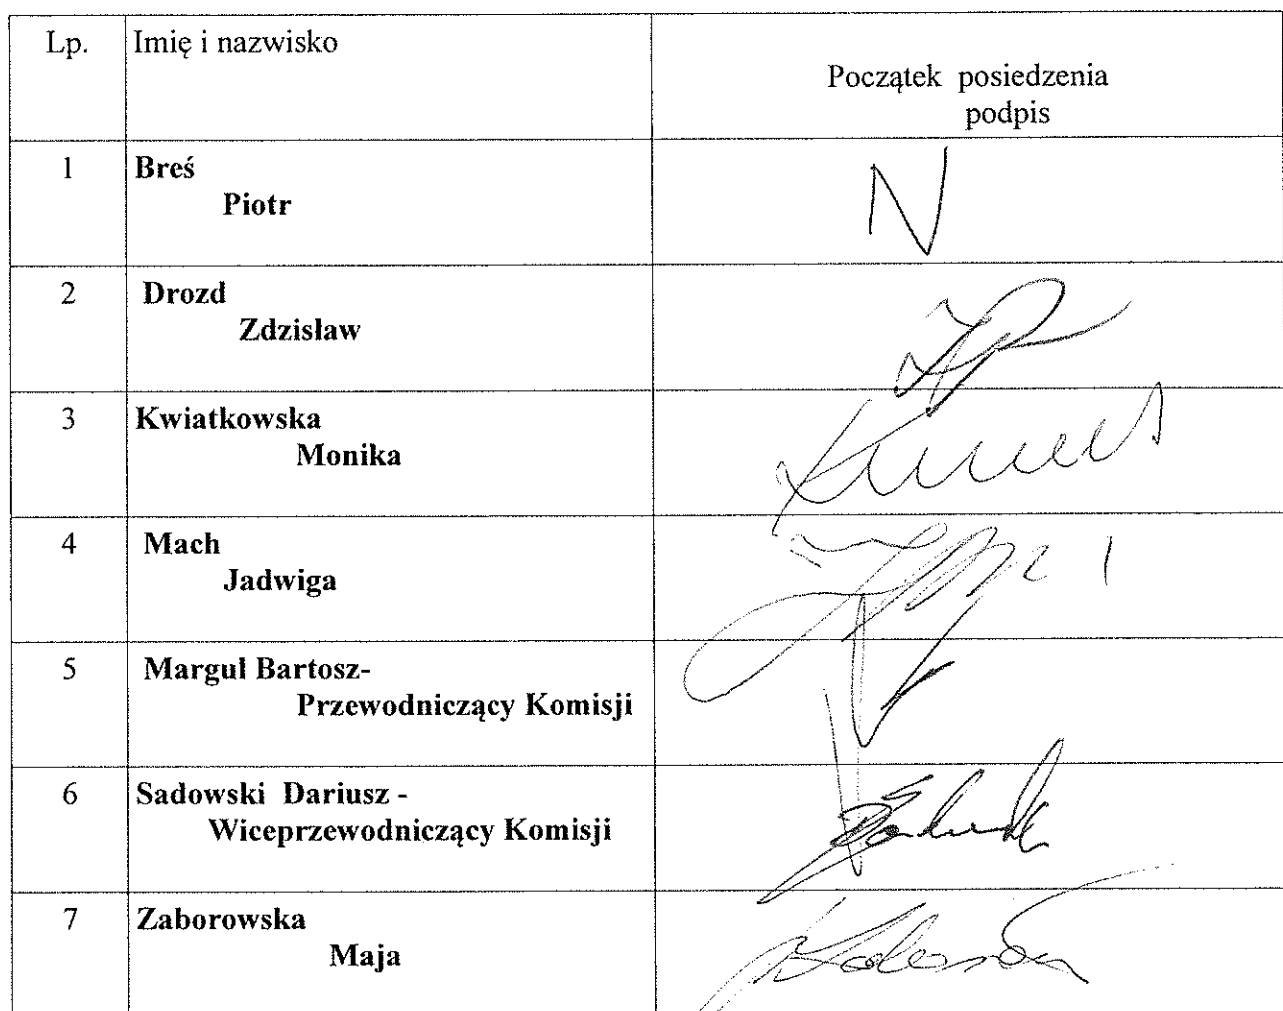 Lp.
Imię i nazwisko
Początek posiedzenia
podpis
1
Breś
Piotr
N
2
Drozd
Zdzisław
3
Kwiatkowska
Monika
4
Mach
Jadwiga
5
Margul Bartosz-
Przewodniczący Komisji
6
Sadowski Dariusz -
Wiceprzewodniczący Komisji
7
Zaborowska
Maja